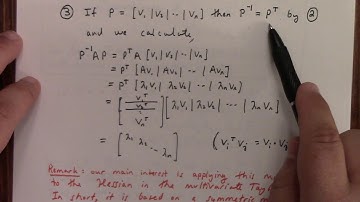 ③ If P = [V₁ | V₂ | ··· | Vₙ] then P⁻¹ = Pᵀ by ②
and we calculate,
P⁻¹AP = PᵀA [V₁ | V₂ | ··· | Vₙ]
= Pᵀ [AV₁ | AV₂ | ··· | AVₙ]
= Pᵀ [λ₁V₁ | λ₂V₂ | ··· | λₙVₙ]
= [V₁ᵀ / V₂ᵀ / ⋮ / Vₙᵀ] [λ₁V₁ | λ₂V₂ | ··· | λₙVₙ]
= [λ₁ λ₂ ··· λₙ] (Vᵢᵀ Vⱼ = Vᵢ • Vⱼ
Remark: our main interest is applying this
to the Hessian in the multivariate
In short, it is based on a symmetric